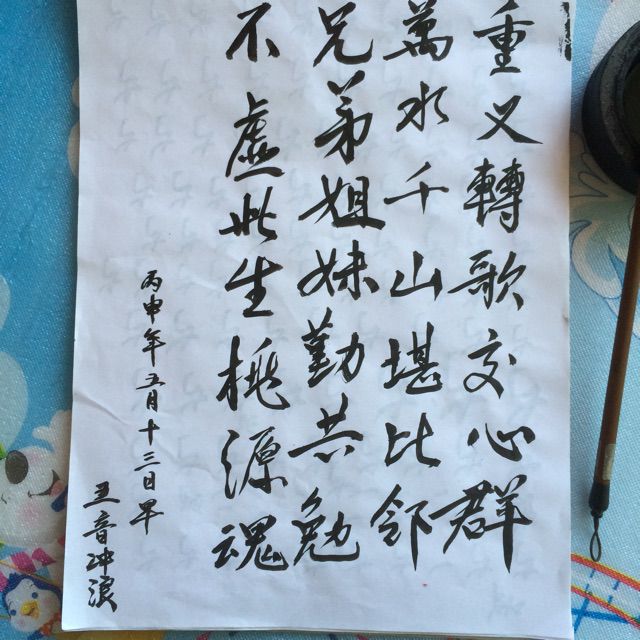 重义轉歌交心群
萬水千山堪比邻
兄弟姐妹勤共勉
不虚此生桃源魂
丙申年五月十三日早
五音冲浪